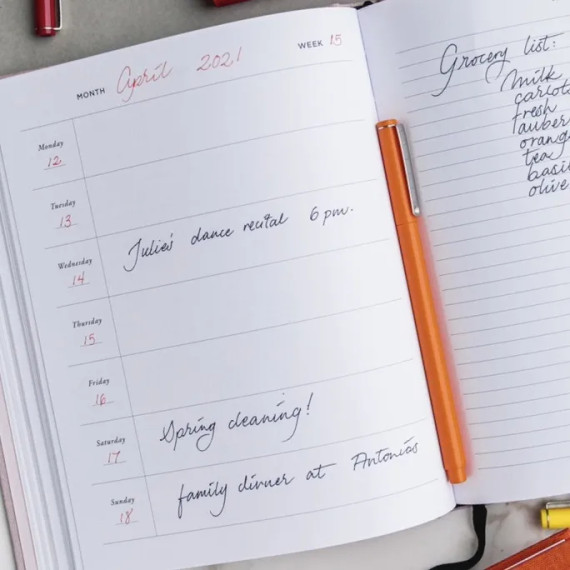 MONTH April 2021 WEEK 15
Monday
12
Tuesday
13
Wednesday
14
Julie's dance recital 6 pm.
Thursday
15
Friday
16
Saturday
17
Spring cleaning!
Sunday
18
family dinner at Antonia's
Grocery list:
Milk
carlot
fresh
tea